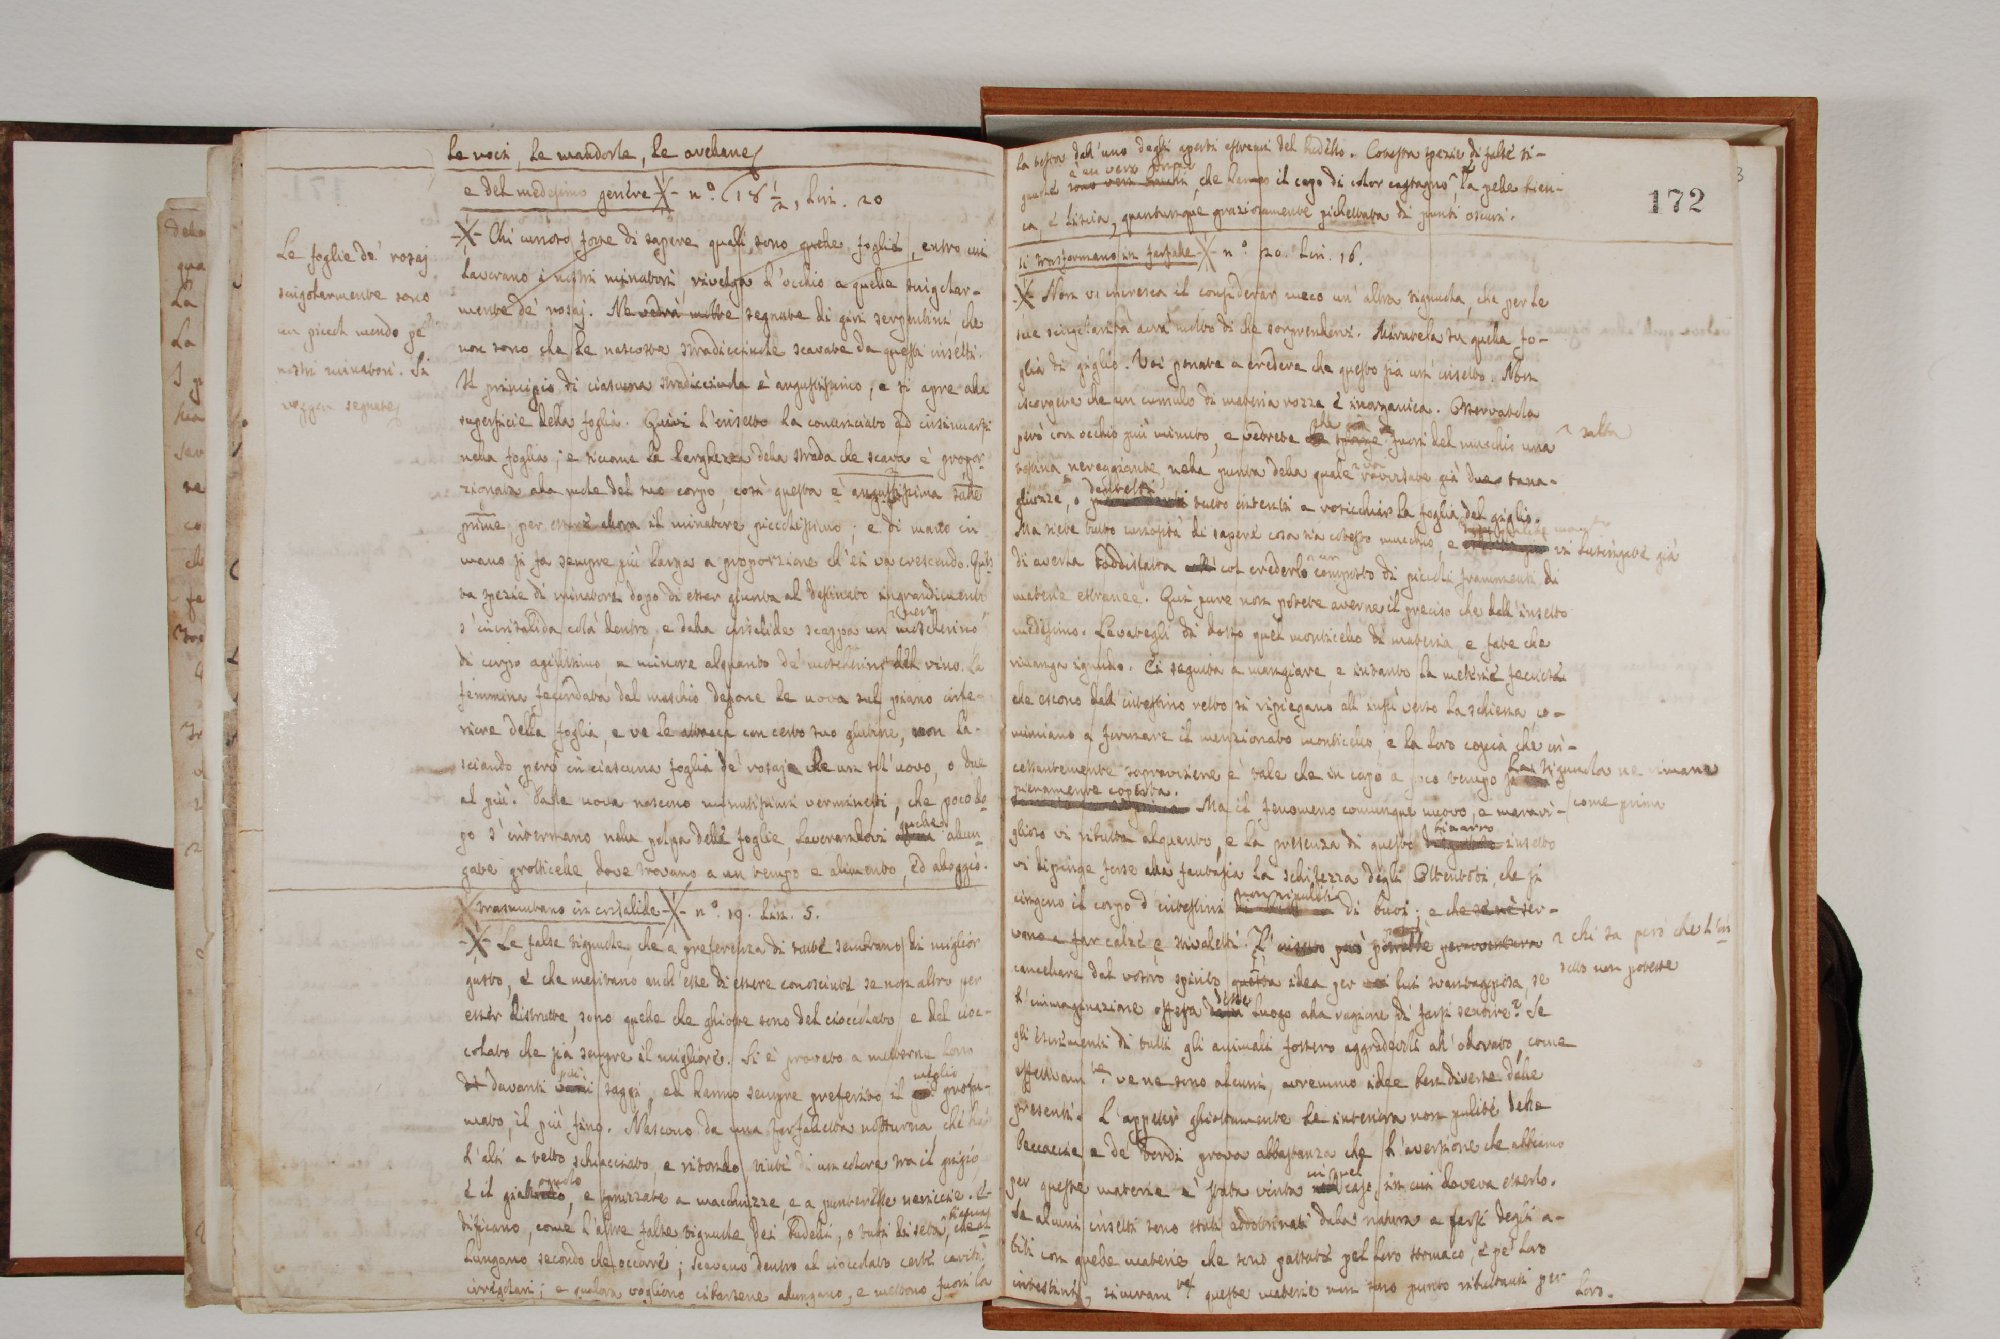 le noci, le mandorle, le avellane
e del medesimo genere n.º 18 1/2, lin. 20
Chi curioso fosse di sapere quali sono quelle foglie, entro cui
lavorano i nostri minatori rivolga l'occhio a quelle singolar-
mente de' rosaj. Ne vedrà molte segnate di giri serpentini che
non sono che le nascoste stradicciuole scavate da questi insetti.
Il principio di ciascuna stradicciuola è angustissimo, e si apre alla
superficie della foglia. Quivi l'insetto ha cominciato ad insinuarsi
nella foglia; e siccome la larghezza della strada che scava è propor-
zionata alla mole del suo corpo, così questa è angustissima sulle
prime, per essere allora il minatore picciolissimo; e di mano in
mano si fa sempre più larga a proporzione ch'ei va crescendo. Ques-
ta spezie di minatori dopo di esser giunta al destinato ingrandimento
s'incrisalida colà dentro, e dalla crisalide scappa un moscherino
di corpo agilissimo, e minore alquanto de' moscherini del vino. La
femmina fecondata dal maschio depone le uova sul piano infe-
riore della foglia, e ve le attacca con certo suo glutine, non la-
sciando però in ciascuna foglia de' rosaj che un sol'uovo, o due
al più. Dalle uova nascono minutissimi verminetti, che poco do-
po s'internano nella polpa delle foglie, lavorandovi quelle allun-
gate grotticelle, dove trovano a un tempo e alimento, ed alloggio.
Le foglie de' rosaj
singolarmente sono
un piccol mondo pe'
nostri minatori. Si
veggon segnate
trasmutano in crisalide n.º 19. Lin. 5.
Le false tignuole, che a preferenza di tutte sembrano di miglior
gusto, e che meritano anch'esse di essere conosciute se non altro per
esser distrutte, sono quelle che ghiotte sono del cioccolato, e del cioc-
colato che sia sempre il migliore. Si è provato a metterne loro
davanti più saggi, ed hanno sempre preferito il meglio profu-
mato, il più fino. Nascono da una farfalletta notturna che ha
l'ali a tetto schiacciato, e ritondo, tinte di un colore tra il grigio
e il giallo, e sprizzate a macchiuzze, e a punterelle nericcie. E-
dificano, come l'altre false tignuole dei tubetti, o tutti di seta, che al-
lungano secondo che occorre; scavano dentro al cioccolato certe cavità
irregolari; e qualora vogliono cibarsene allungano, e mettono fuori la
172
la testa dall'uno degli aperti estremi del tubetto. Cotesta spezie di false ti-
gnuole è un vero bruco, che hanno il capo di color castagno, la pelle bian-
ca, e liscia, quantunque graziosamente picchettata di punti oscuri.
si trasformano in farfalle n.º 20. Lin. 16.
Non vi incresca il considerar meco un'altra tignuola, che per le
sue singolarità avrà molto di che sorprendervi. Miratela su quella fo-
glia di giglio. Voi penate a credere che questo sia un insetto. Non
iscorgete che un cumulo di materia rozza, e inorganica. Osservatela
però con occhio più minuto, e vedrete che fuori del mucchio una
testina nereggiante, nella punta della quale ravvisate già due tana-
gliuzze, o dentelli tutto intenti a rosicchiar la foglia del giglio.
Ma siete tutto curiosità di sapere cosa sia cotesto mucchio, e vi lusingate già
di averla soddisfatta col crederlo composto di piccoli frammenti di
materie estranee. Qui pure non potete averne il preciso che dall'insetto
medesimo. Levategli di dosso quel monticello di materia, e fate che
rimanga ignudo. Ei seguita a mangiare, e intanto la materie feccióse
che escono dall'intestino retto si ripiegano all'insù verso la schiena, co-
minciano a formare il menzionato monticello, e la loro copia che in-
cessantemente sopravviene è tale che in capo a poco tempo la tignuola ne rimane
pienamente coperta. Ma il fenomeno comunque nuovo, e meravi-
glioso vi ributta alquanto, e la presenza di questo bizzarro insetto
vi dipinge forse alla fantasia la schifezza degli Ottentotti, che si
cingono il corpo d'intestini non ripuliti di buoi; e che se ne ser-
vono a far calze e stivaletti.
cancellare dal vostro spirito questa idea per lui svantaggiosa, se
l'immaginazione offesa desse luogo alla ragione di farsi sentire? Se
gli escrementi di tutti gli animali fossero aggradevoli all'odorato, come
effettivam.te ve ne sono alcuni, avremmo idee ben diverse dalle
presenti. L'appetir ghiottamente le interiora non pulite delle
beccaccie e de' tordi prova abbastanza che l'aversione che abbiamo
per queste materie è stata vinta in quel caso, in cui doveva esserlo.
Se alcuni insetti sono stati addottrinati dalla natura a farsi degli a-
biti con quelle materie che sono passate pel loro stomaco, e pe' loro
intestini, sicuram.te queste materie non sono punto ributtanti per loro.
come prima
chi sa però che l'in-
setto non potesse